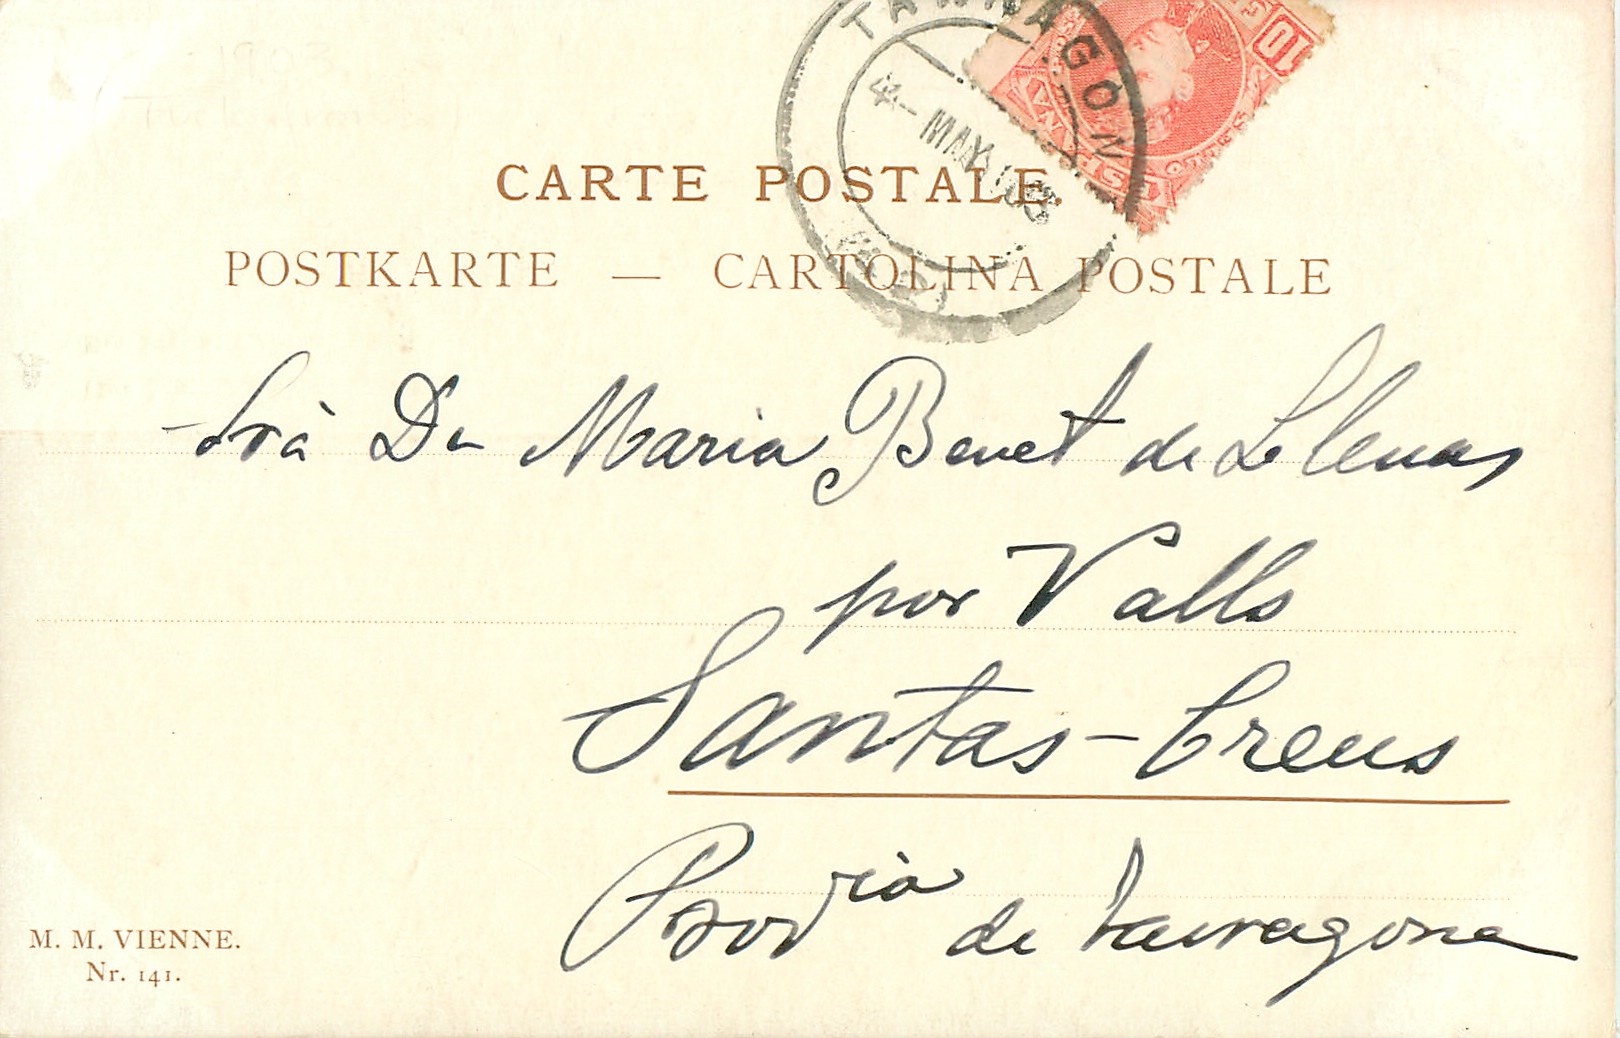 TARRAGONA
4 - MAY. 05
10
ESPAÑA
CARTE POSTALE.
POSTKARTE — CARTOLINA POSTALE
Srà Da Maria Benet de Llenas
por Valls
Santas-Creus
Provia de Tarragona
M. M. VIENNE.
Nr. 141.